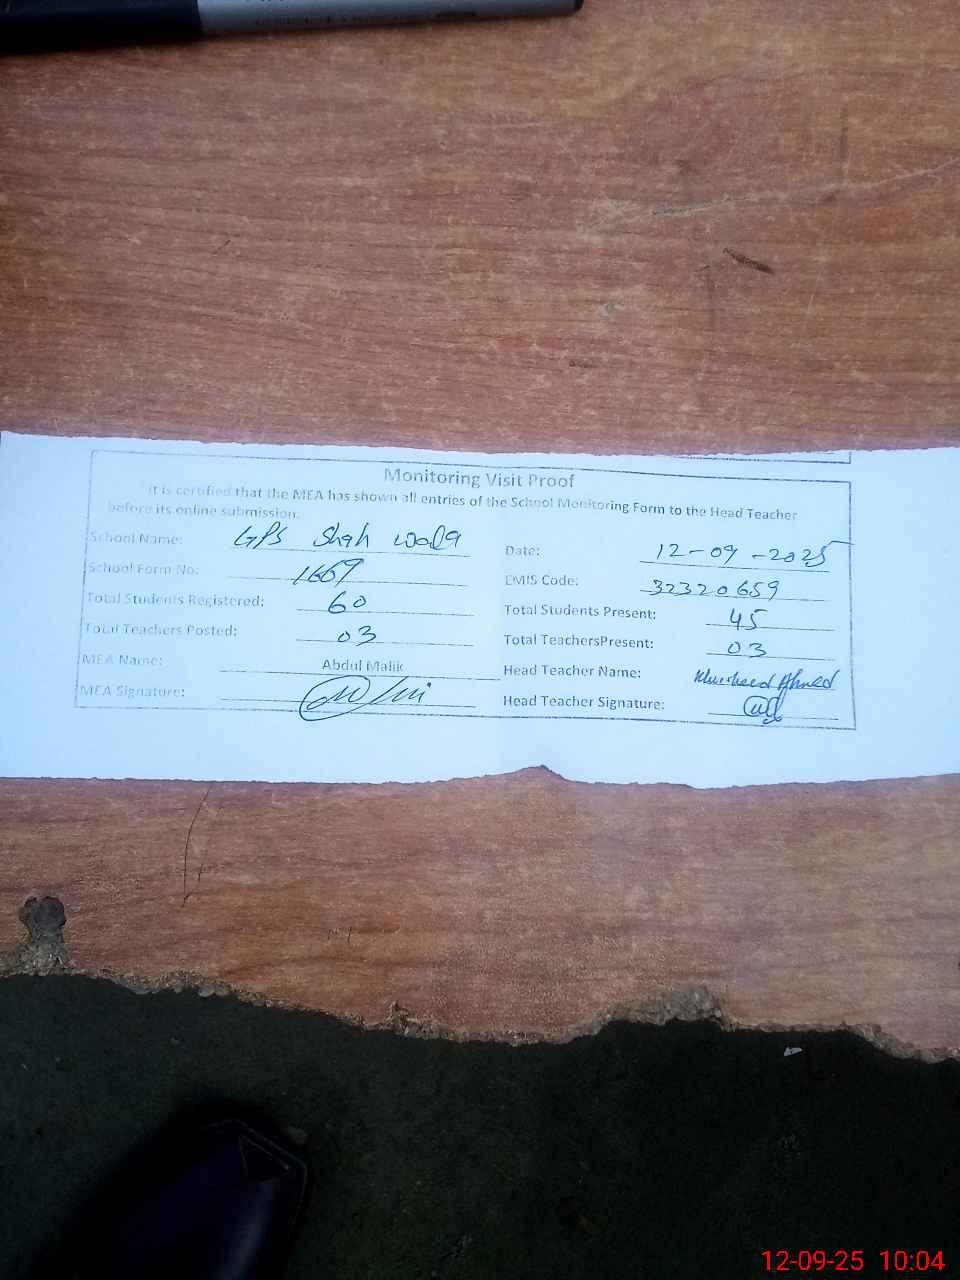 Monitoring Visit Proof
It is certified that the MEA has shown all entries of the School Monitoring Form to the Head Teacher
before its online submission.
School Name: GPS Shah wala
Date: 12-09-2025
School Form No: 1669
EMIS Code: 32320659
Total Students Registered: 60
Total Students Present: 45
Total Teachers Posted: 03
Total TeachersPresent: 03
MEA Name: Abdul Malik
Head Teacher Name: Ahmed
MEA Signature:
Head Teacher Signature:
12-09-25 10:04